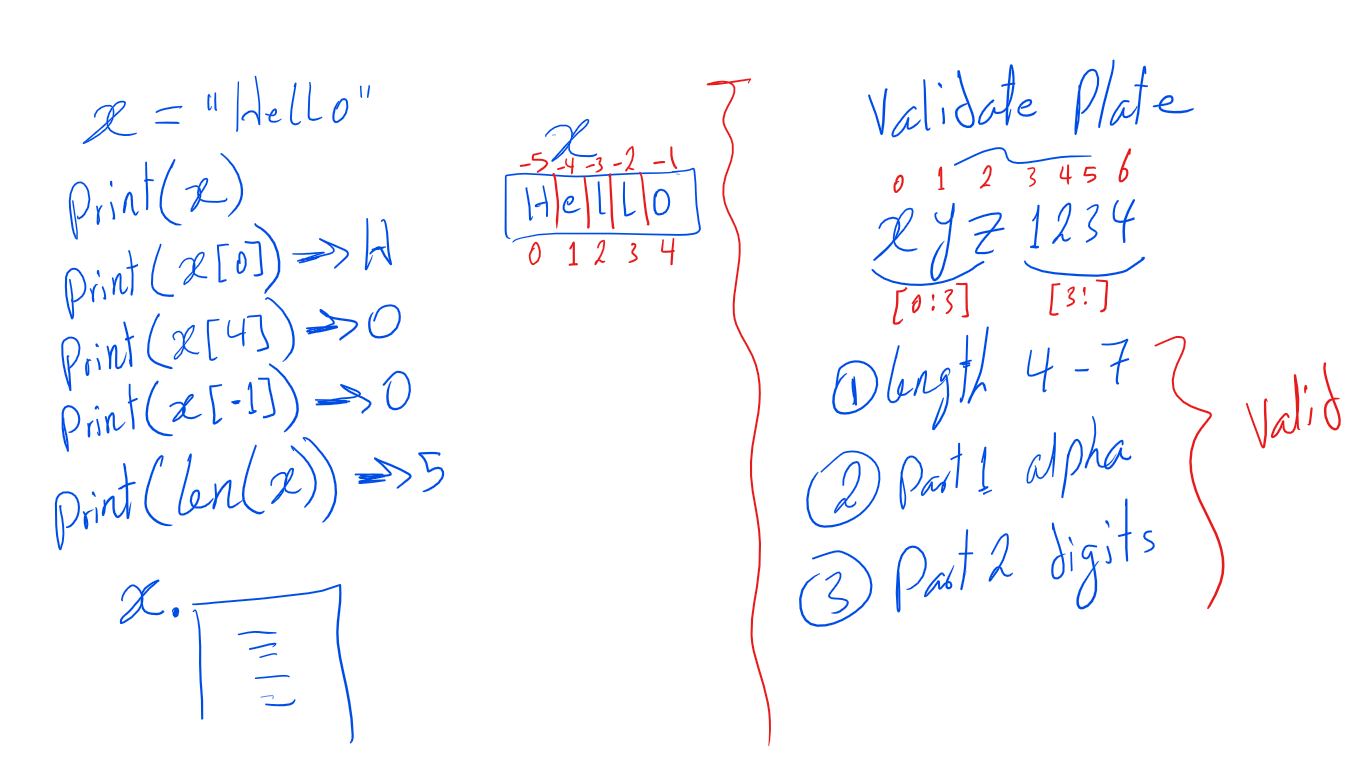 x = "Hello"
Print(x)
Print(x[0]) => H
Print(x[4]) => O
Print(x[-1]) => O
Print(len(x)) => 5
x.
x
-5 -4 -3 -2 -1
H e l L o
0 1 2 3 4
Validate Plate
0 1 2 3 4 5 6
x y z 1 2 3 4
[0:3] [3:]
① length 4 - 7
② Part 1 alpha
③ Part 2 digits
Valid